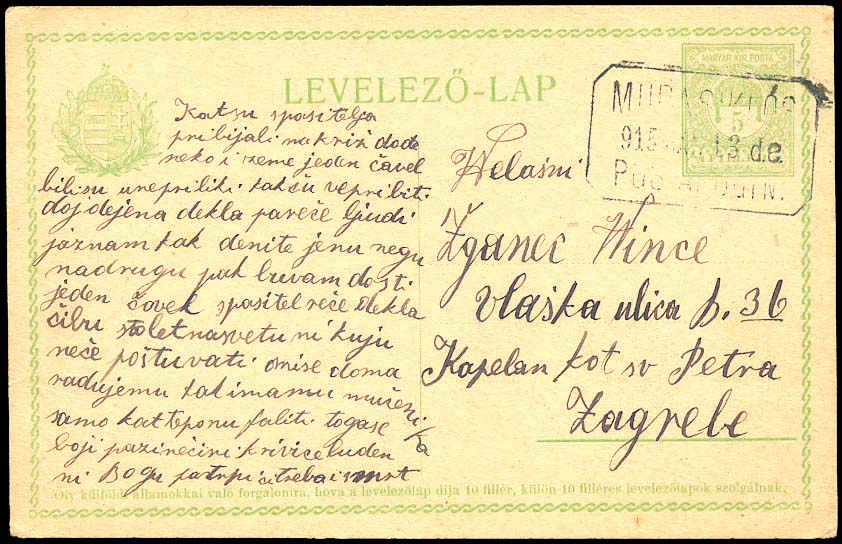 MAGYAR KIR. POSTA
5
LEVELEZŐ-LAP
915 13 d.e.
Katsu spasitelja
pribijali na križ dode
neko i zeme jeden čavel
bilisu unepriliki takču vepribiti
dojdejena dekla pareče ljudi
jaznam tak denite jenu negu
nadrugu pak buvam dosti
jeden čovek spasitel reče dekla
čibu stolet nasvetu ni kuju
neče poštuvati onise doma
radujemu tak imamu mučeni
ka
samo kat teponu faliti togase
boji pazi nečini krivice luden
ni Bogu patrpi čitreba i smrt
Welašni
Žganec Vince
Vlaška ulica b. 36
Kapelan kot sv Petra
Zagrebe
Oly külföldi államokkal való forgalomra, hova a levelezőlap díja 10 fillér, külön 10 filléres levelezőlapok szolgálnak.